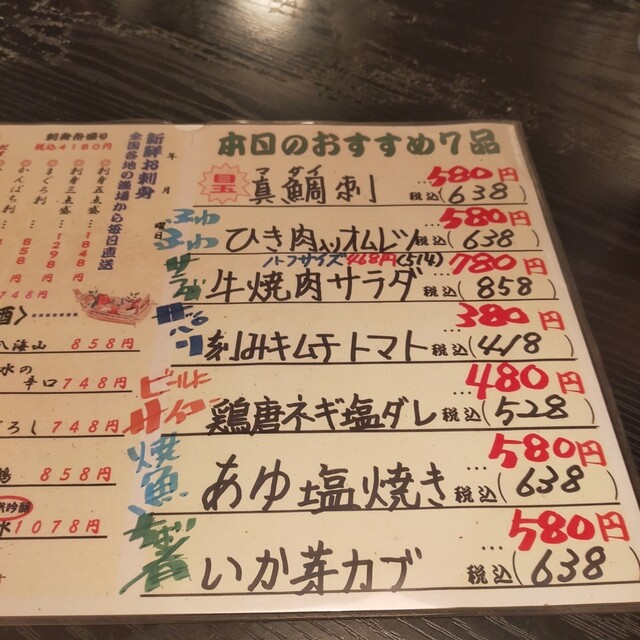 本日のおすすめ7品
目玉
マダイ
真鯛刺 …580円
税込(638)
ふわふわ
ひき肉入りオムレツ …580円
税込(638)
サラダ
ハーフサイズ468円(514)
牛焼肉サラダ …780円
税込(858)
刻みキムチトマト …380円
税込(418)
ビールに
サイコー
鶏唐ネギ塩ダレ …480円
税込(528)
焼魚
あゆ塩焼き …580円
税込(638)
いか芽カブ …580円
税込(638)
年
月
曜日
新鮮お刺身
全国各地の漁場から毎日直送
刺身五点盛…1848円
刺身三点盛…1298円
まぐろ刺…858円
かんぱち刺…
税込4180円
748円
酒〉………
八海山 858円
水の
辛口 748円
ろし 748円
鶴 858円
水 1078円